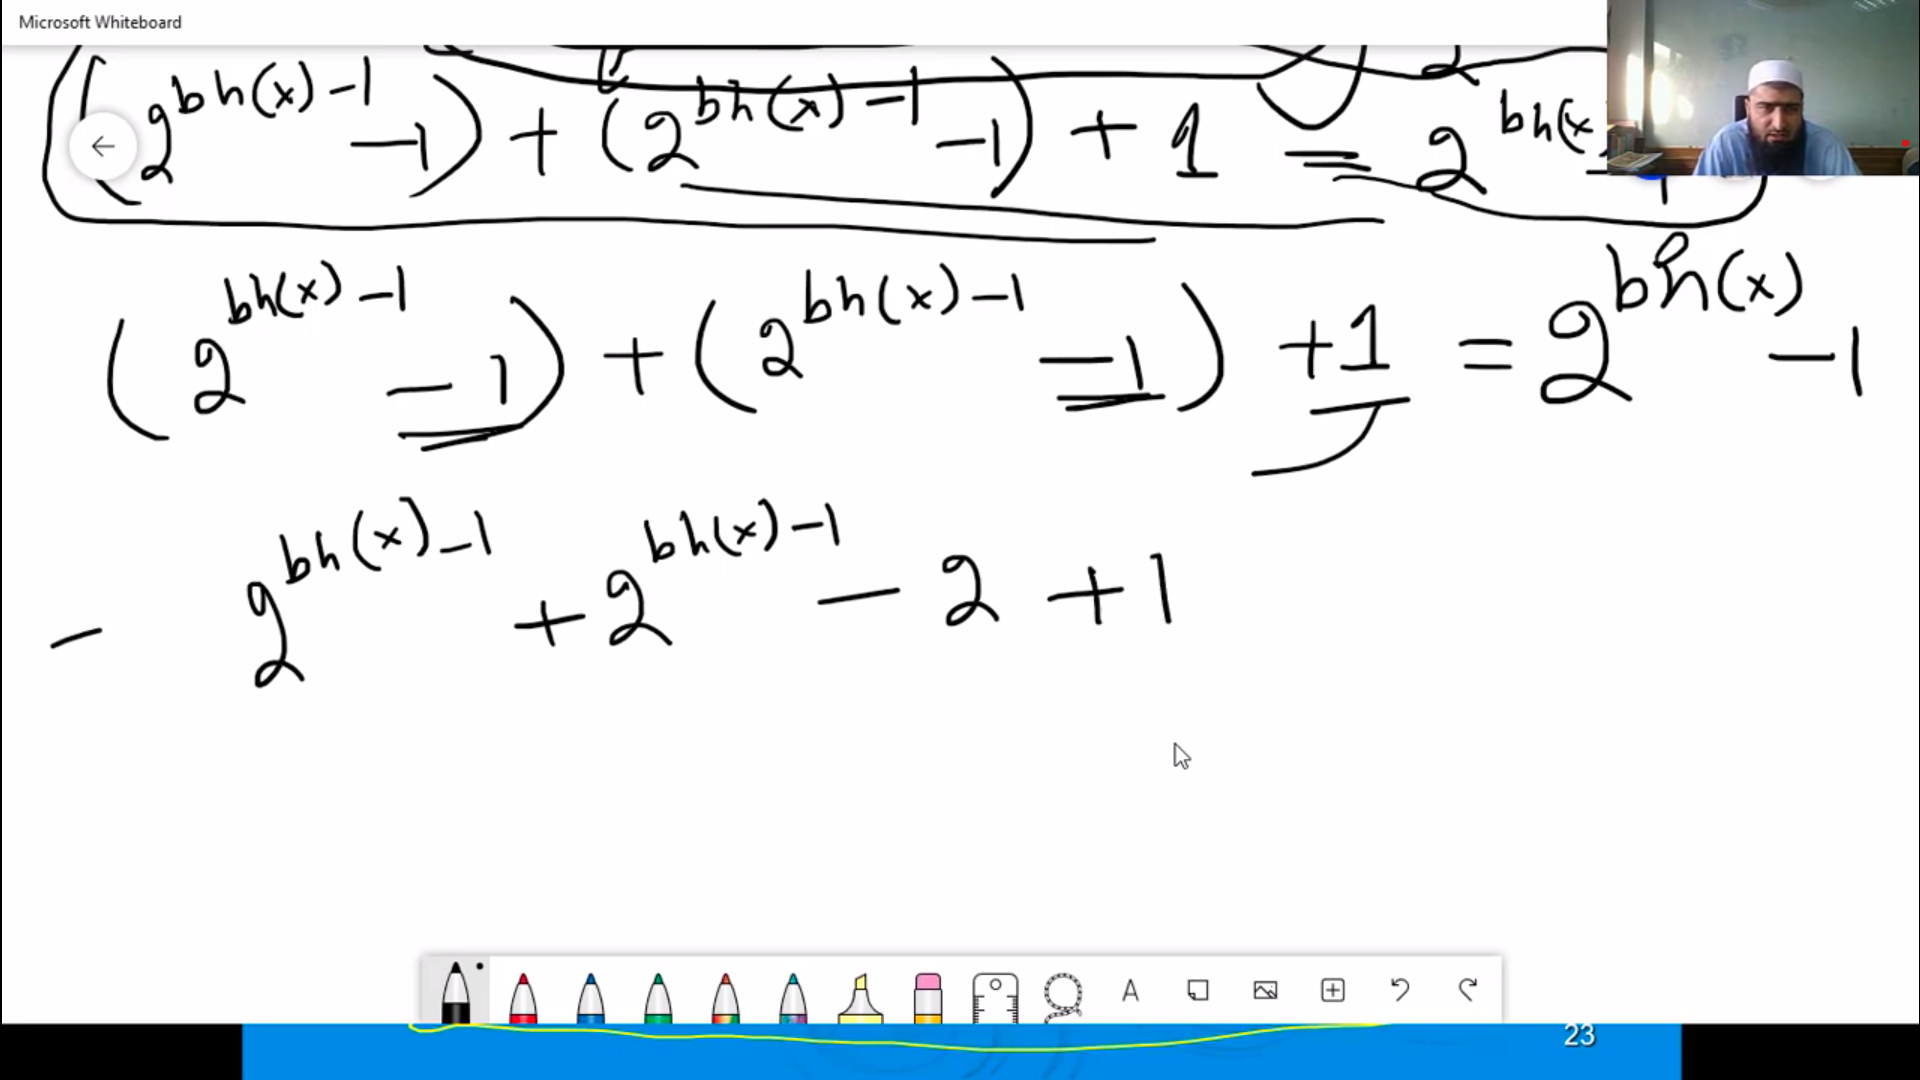 Microsoft Whiteboard
2
(2^bh(x)-1 -1) + (2^bh(x)-1 -1) + 1 = 2^bh(x -1
(2^bh(x)-1 -1) + (2^bh(x)-1 -1) +1 = 2^bh(x) -1
- 2^bh(x)-1 + 2^bh(x)-1 - 2 + 1
A
23